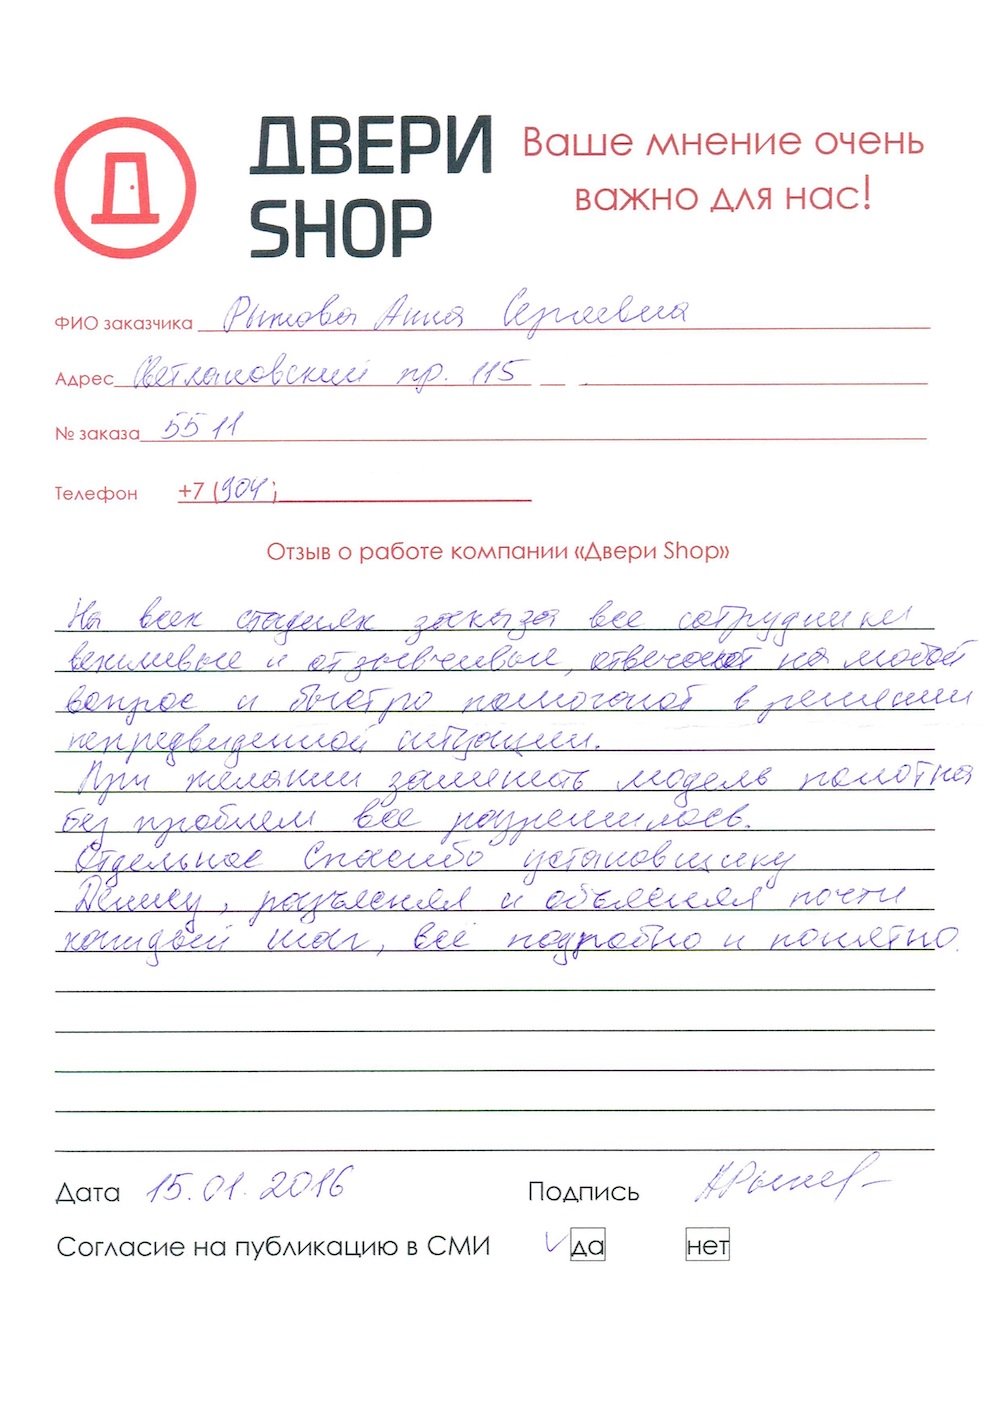 ДВЕРИ
SHOP
Ваше мнение очень
важно для нас!
ФИО заказчика Рыжова Анна Сергеевна
Адрес Светлановский пр. 115
№ заказа 5511
Телефон +7 (904)
Отзыв о работе компании «Двери Shop»
На всех стадиях заказа все сотрудники
вежливые и отзывчивые, отвечают на любой
вопрос и быстро помогают в решении
непредвиденной ситуации.
При желании заменить модель полотна
без проблем все разрешилось.
Отдельное спасибо установщику
Денису, разъяснял и объяснял почти
каждый шаг, всё подробно и понятно.
Дата 15.01.2016 Подпись
Согласие на публикацию в СМИ да нет